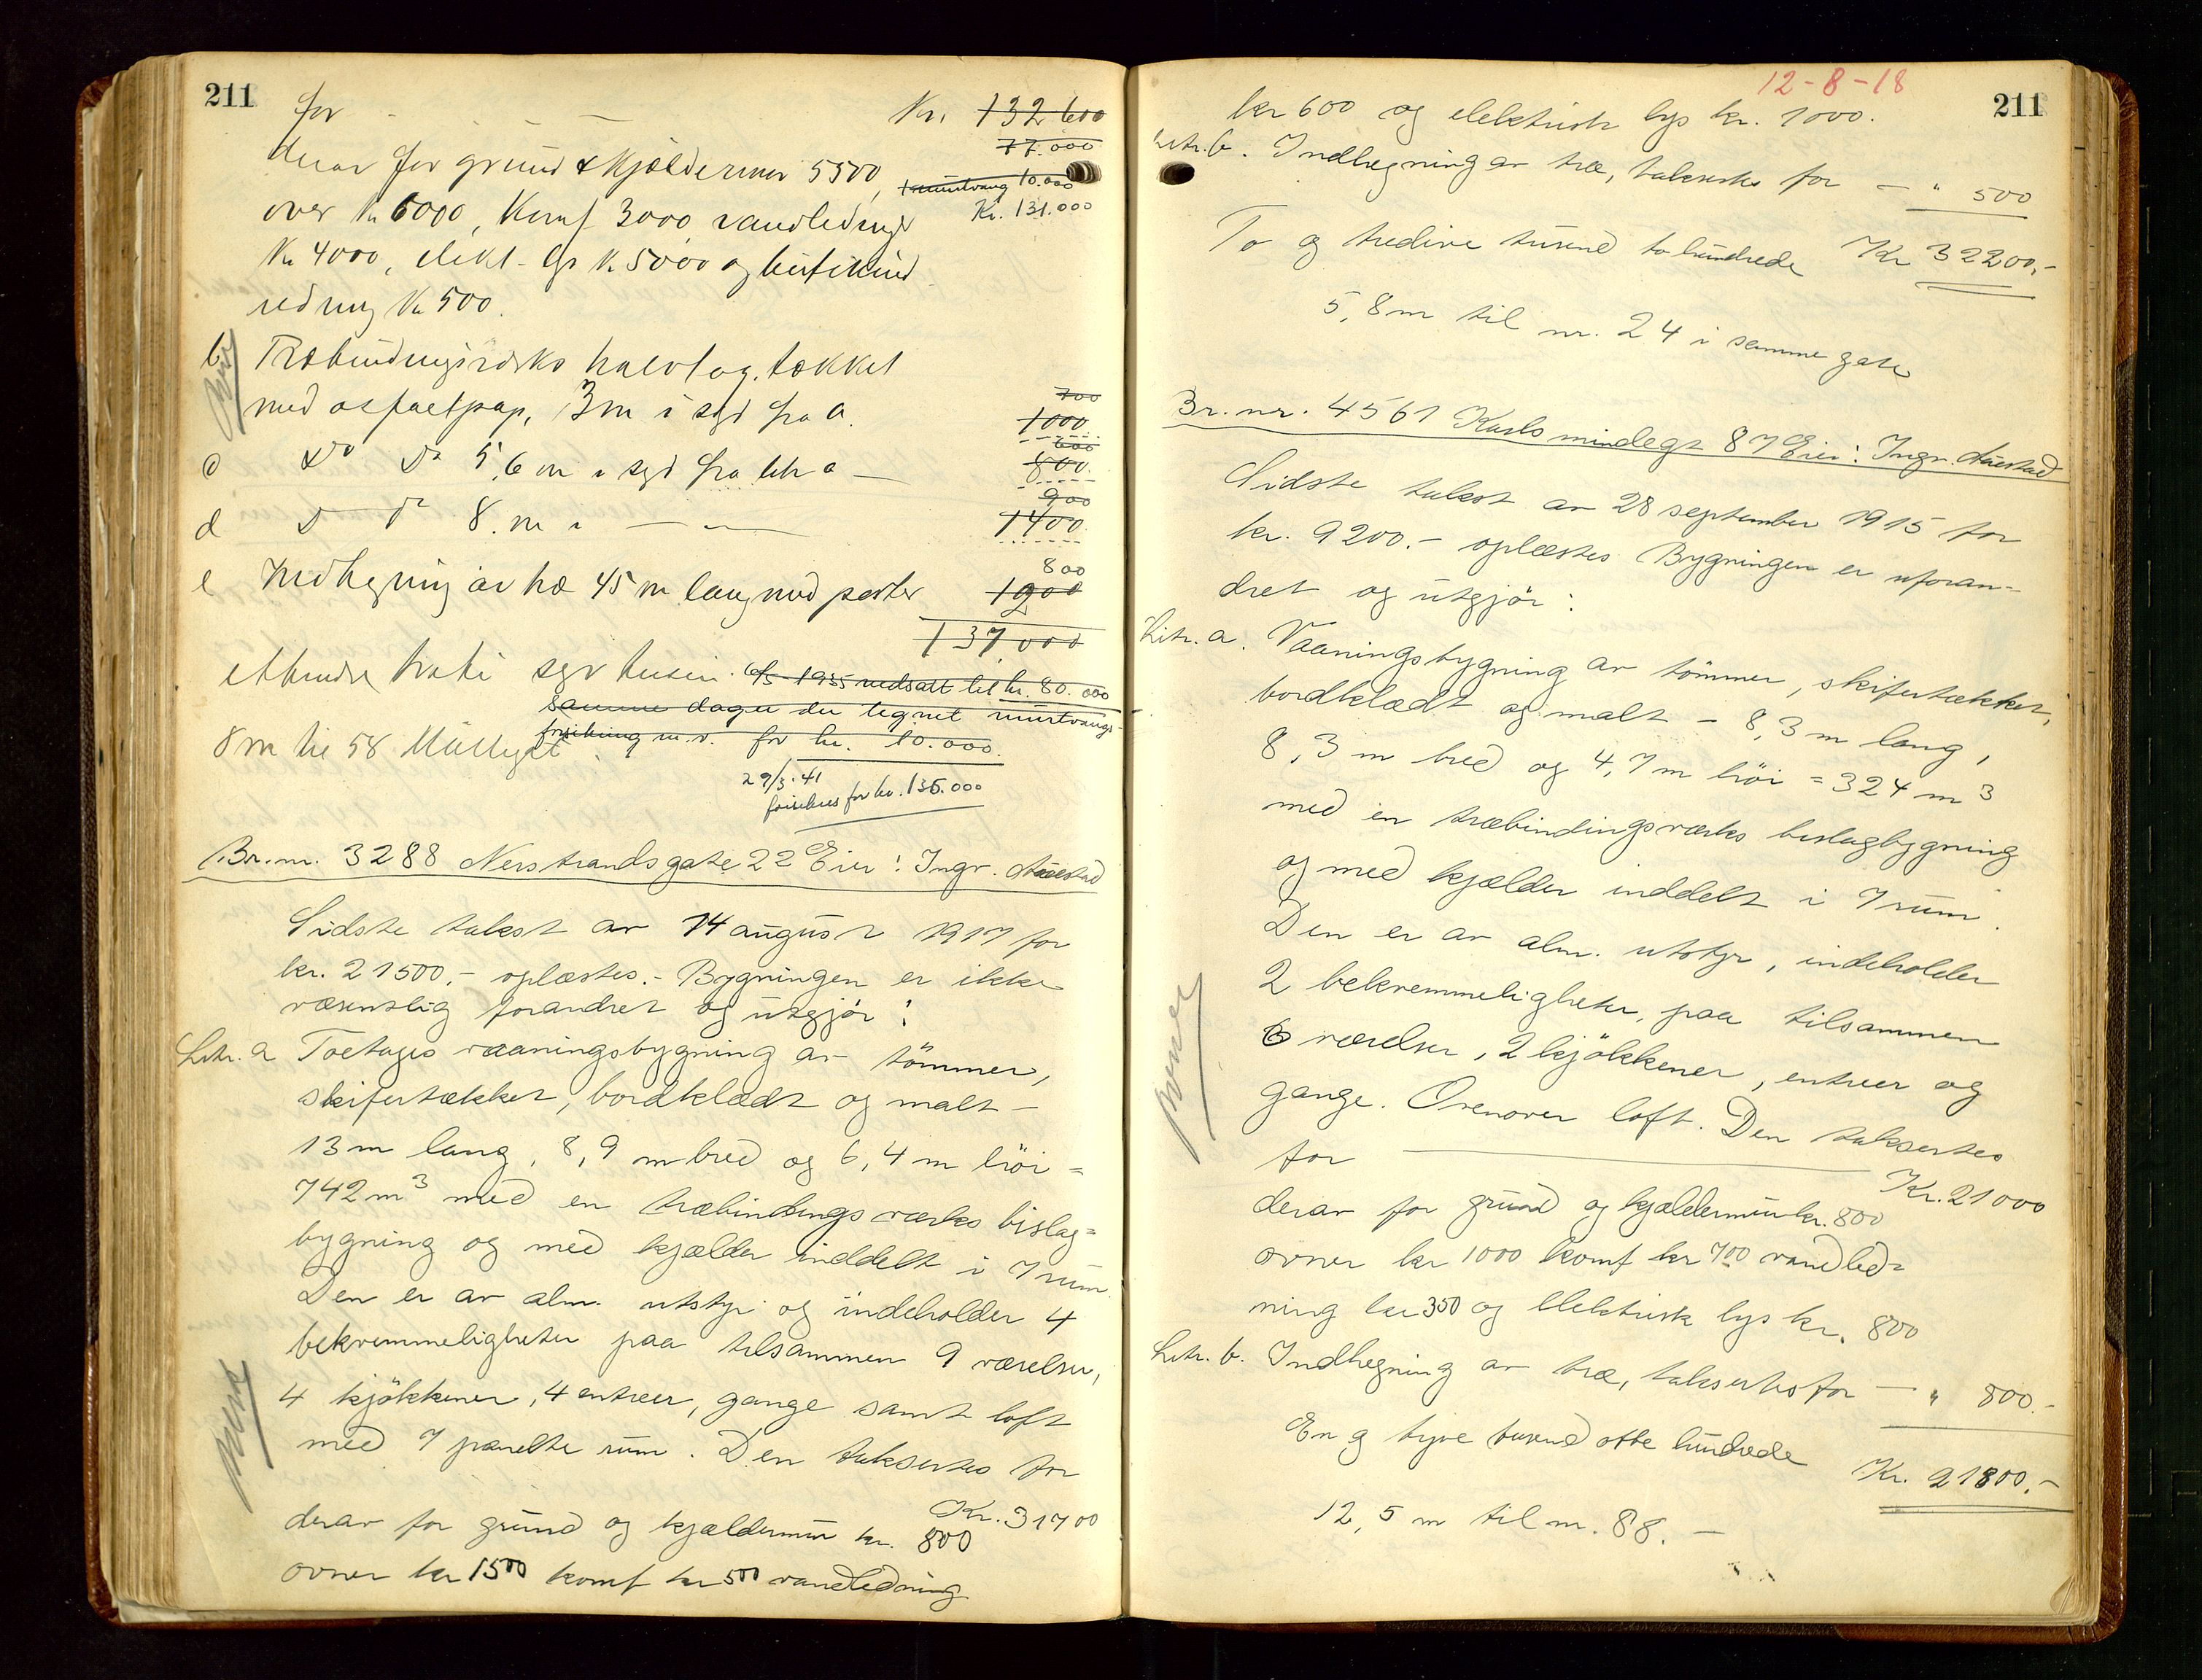 211
for Kr. 132600
77.000
derav for grund & kjældermur 5500,
murtvang 10.000
Kr. 131.000
over kr 6000, Komf 3000 vandledninge
Kr 4000, elekt. lys kr 5000 og
redning Kr 500.
b Træbindingsværks halvtag, tækket
med asfaltpap, 3 m i syd fra a. 700 1000
c Do Do 5,6 m i syd fra litr a — 600 800
d D d 8. m i — — 900 1400
e Indhegning av træ 45 m lang med porter 800 1900
137,000
et hundre tretti syv tusen. 6/5 1935 nedsatt til kr. 80.000
samme dager der tegnet murtvangs-
forsikring m.v. for kr. 10.000.
8 m til 58
29/3-41
forsikres for kr. 135.000
Br. nr. 3288 Nerstrandsgate 22 Eier: Ingv. Auestad
Sidste takst av 14 august 1917 for
kr. 21500.- oplæstes.- Bygningen er ikke
væsentlig forandret og utgjør:
Litr. a Toetages vaaningsbygning av tömmer,
skifertækket, bordklædt og malt -
13 m lang, 8,9 m bred og 6,4 m höi =
742 m3 med en træbindings værks bislag=
bygning og med kjælder inddelt i 7 rum.
Den er av alm. utstyr og indeholder 4
bekvemmeligheter paa tilsammen 9 værelser,
4 kjökkener, 4 entreer, gange samt loft
med 7 panelte rum. Den taksertes for
Kr. 31700
derav for grund og kjældermur kr. 800
ovner kr 1500 komf kr 500 vandledning
12-8-18
211
kr 600 og elektrisk lys kr. 1000.
Litr. b. Indhegning av træ, taksertes for — " 500
To og tredive tusend to hundrede Kr 32200,-
5,8 m til nr. 24 i samme gate
Br. nr. 4561 Karlsmindegt 87 Eier: Ingv. Auestad
Sidste takst av 28 september 1915 for
kr. 9200.- oplæstes Bygningen er uforan=
dret og utgjör:
Litr. a. Vaaningsbygning av tömmer, skifertækket,
bordklædt og malt - 8,3 m lang,
8,3 m bred og 4,7 m höi = 324 m3
med en træbindingsværks bislagbygning
og med kjælder inddelt i 7 rum.
Den er av alm. utstyr, indeholder
2 bekvemmeligheter, paa tilsammen
6 værelser, 2 kjökkener, entreer og
gange. Ovenover loft. Den taksertes
for — Kr. 21000
derav for grund og kjældermur kr. 800
ovner kr 1000 komf kr 700 vandled=
ning kr 350 og elektrisk lys kr. 800
Litr. b. Indhegning av træ, taksertes for — " 800.-
En og tyve tusend otte hundrede
Kr. 21800.-
12,5 m til nr. 88. —